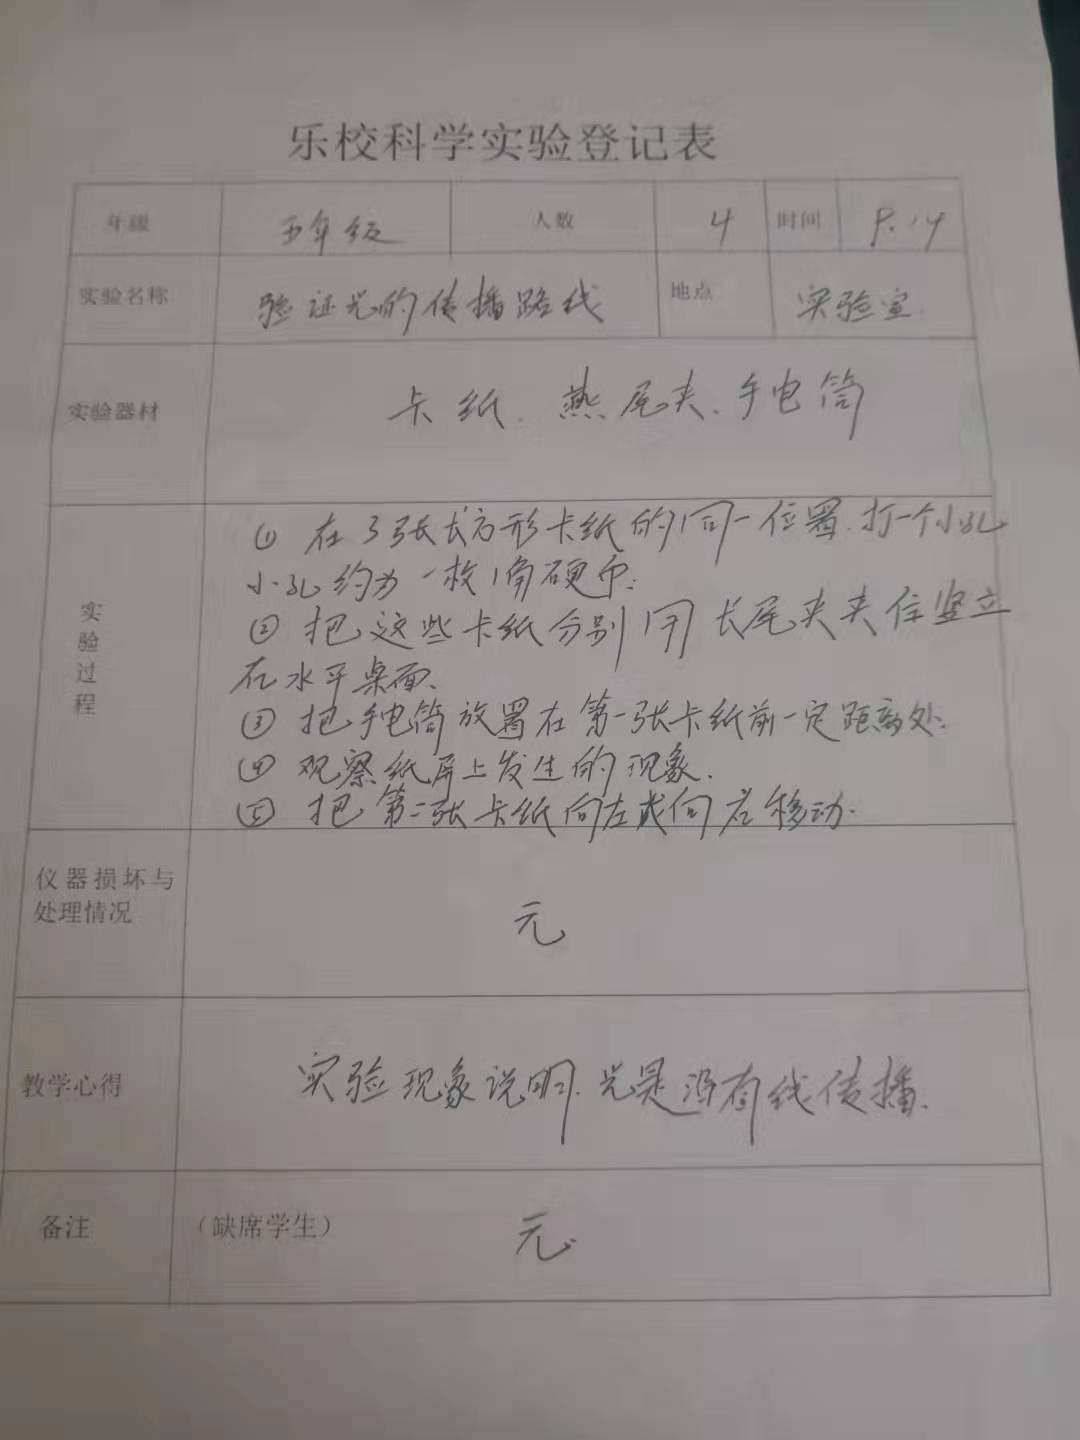 乐校科学实验登记表
年级 五年级 人数 4 时间 9.14
实验名称 验证光的传播路线 地点 实验室.
实验器材 卡纸、燕尾夹、手电筒
实验过程
① 在3张长方形卡纸的同一位置.打一个小孔
小孔约为一枚1角硬币.
② 把这些卡纸分别用长尾夹夹住竖立
在水平桌面.
③ 把手电筒放置在第一张卡纸前一定距离处.
④ 观察纸屏上发生的现象.
⑤ 把第二张卡纸向左或向右移动.
仪器损坏与
处理情况
无
教学心得 实验现象说明.光是沿直线传播.
备注 （缺席学生） 无.